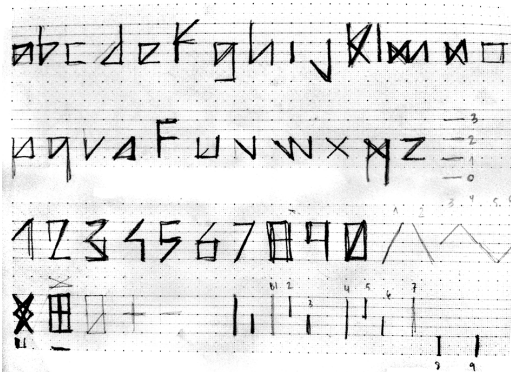 abcdefghijklmno
pqrstuvwxyz
3
2
1
0
1234567890
1 2 3 4 5
+ -
2 3 4 5 6 7
8 9